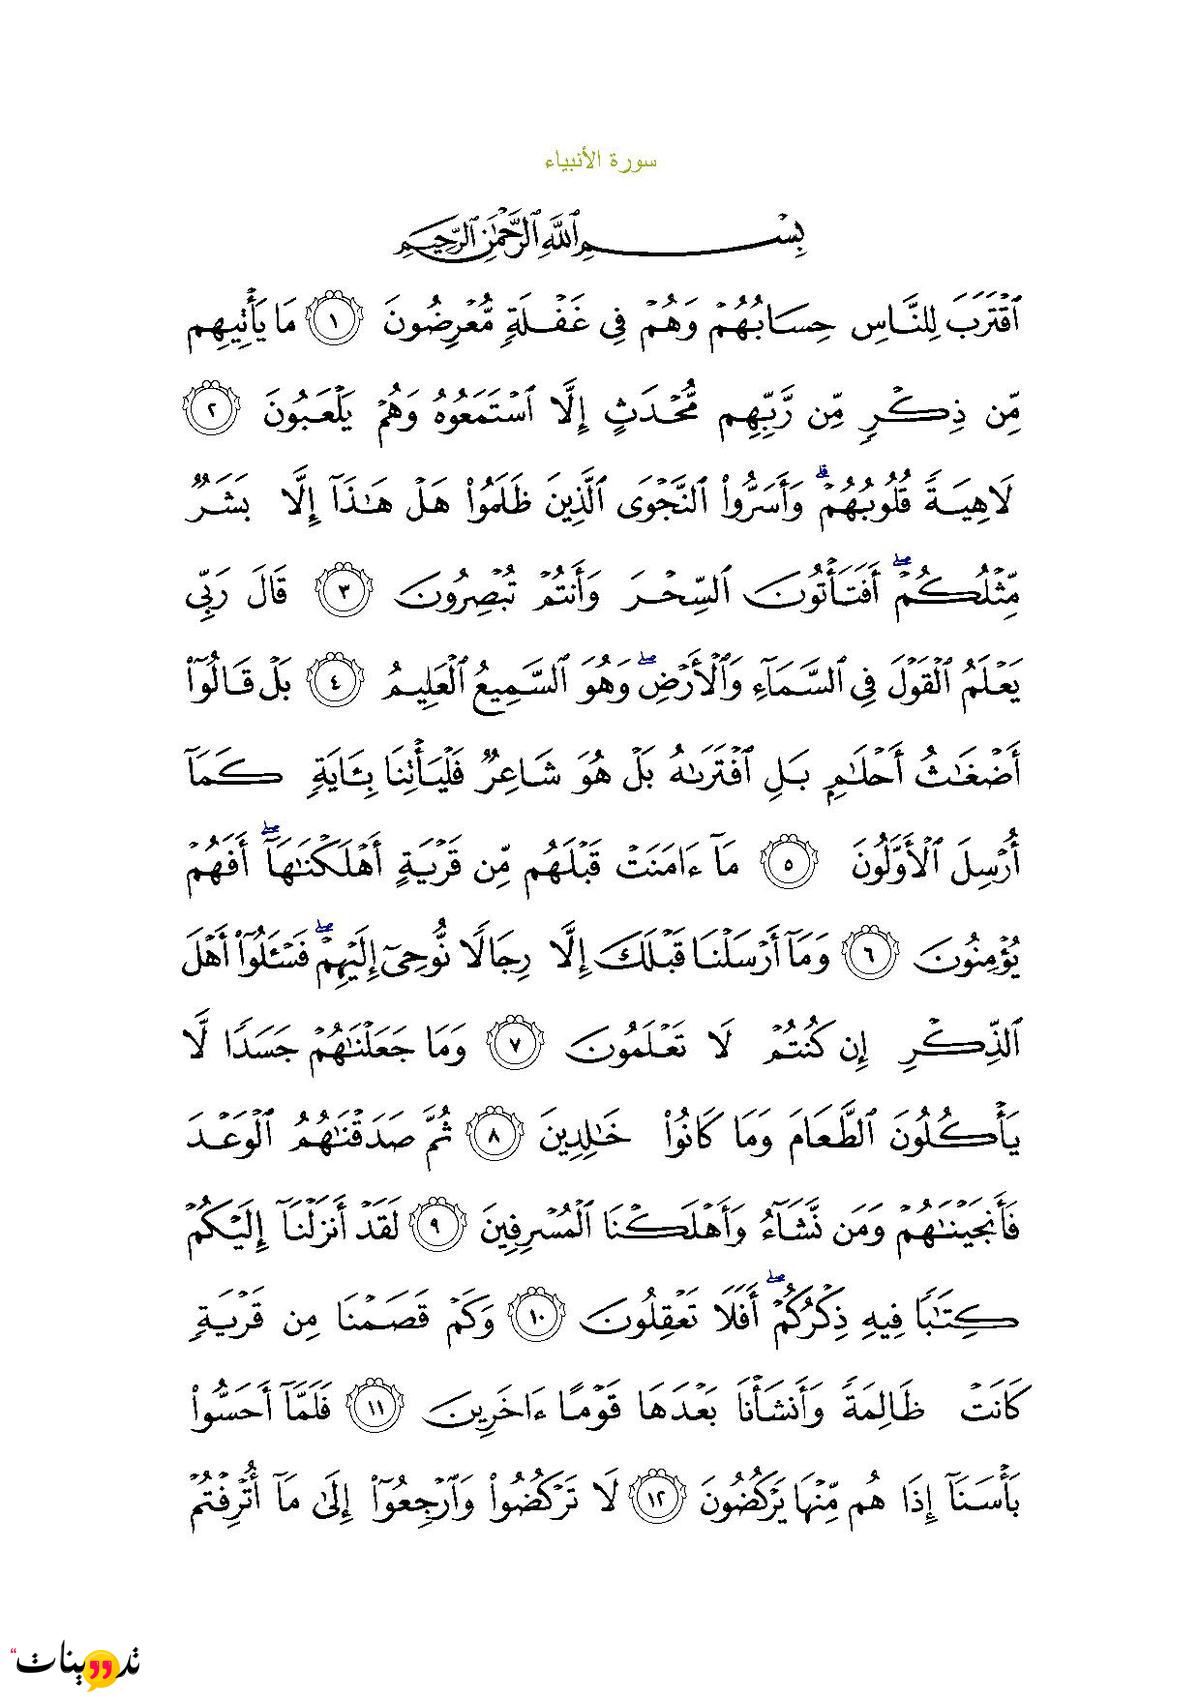 سورة الأنبياء
بِسْمِ ٱللَّهِ ٱلرَّحْمَٰنِ ٱلرَّحِيمِ
ٱقْتَرَبَ لِلنَّاسِ حِسَابُهُمْ وَهُمْ فِى غَفْلَةٍ مُّعْرِضُونَ ١ مَا يَأْتِيهِم
مِّن ذِكْرٍ مِّن رَّبِّهِم مُّحْدَثٍ إِلَّا ٱسْتَمَعُوهُ وَهُمْ يَلْعَبُونَ ٢
لَاهِيَةً قُلُوبُهُمْ ۗ وَأَسَرُّوا۟ ٱلنَّجْوَى ٱلَّذِينَ ظَلَمُوا۟ هَلْ هَـٰذَآ إِلَّا بَشَرٌ
مِّثْلُكُمْ ۖ أَفَتَأْتُونَ ٱلسِّحْرَ وَأَنتُمْ تُبْصِرُونَ ٣ قَالَ رَبِّى
يَعْلَمُ ٱلْقَوْلَ فِى ٱلسَّمَآءِ وَٱلْأَرْضِ ۖ وَهُوَ ٱلسَّمِيعُ ٱلْعَلِيمُ ٤ بَلْ قَالُوٓا۟
أَضْغَـٰثُ أَحْلَـٰمٍۭ بَلِ ٱفْتَرَىٰهُ بَلْ هُوَ شَاعِرٌ فَلْيَأْتِنَا بِـَٔايَةٍ كَمَآ
أُرْسِلَ ٱلْأَوَّلُونَ ٥ مَآ ءَامَنَتْ قَبْلَهُم مِّن قَرْيَةٍ أَهْلَكْنَـٰهَآ ۖ أَفَهُمْ
يُؤْمِنُونَ ٦ وَمَآ أَرْسَلْنَا قَبْلَكَ إِلَّا رِجَالًا نُّوحِىٓ إِلَيْهِمْ ۖ فَسْـَٔلُوٓا۟ أَهْلَ
ٱلذِّكْرِ إِن كُنتُمْ لَا تَعْلَمُونَ ٧ وَمَا جَعَلْنَـٰهُمْ جَسَدًا لَّا
يَأْكُلُونَ ٱلطَّعَامَ وَمَا كَانُوا۟ خَـٰلِدِينَ ٨ ثُمَّ صَدَقْنَـٰهُمُ ٱلْوَعْدَ
فَأَنجَيْنَـٰهُمْ وَمَن نَّشَآءُ وَأَهْلَكْنَا ٱلْمُسْرِفِينَ ٩ لَقَدْ أَنزَلْنَآ إِلَيْكُمْ
كِتَـٰبًا فِيهِ ذِكْرُكُمْ ۖ أَفَلَا تَعْقِلُونَ ١٠ وَكَمْ قَصَمْنَا مِن قَرْيَةٍ
كَانَتْ ظَالِمَةً وَأَنشَأْنَا بَعْدَهَا قَوْمًا ءَاخَرِينَ ١١ فَلَمَّآ أَحَسُّوا۟
بَأْسَنَآ إِذَا هُم مِّنْهَا يَرْكُضُونَ ١٢ لَا تَرْكُضُوا۟ وَٱرْجِعُوٓا۟ إِلَىٰ مَآ أُتْرِفْتُمْ
تدوينات